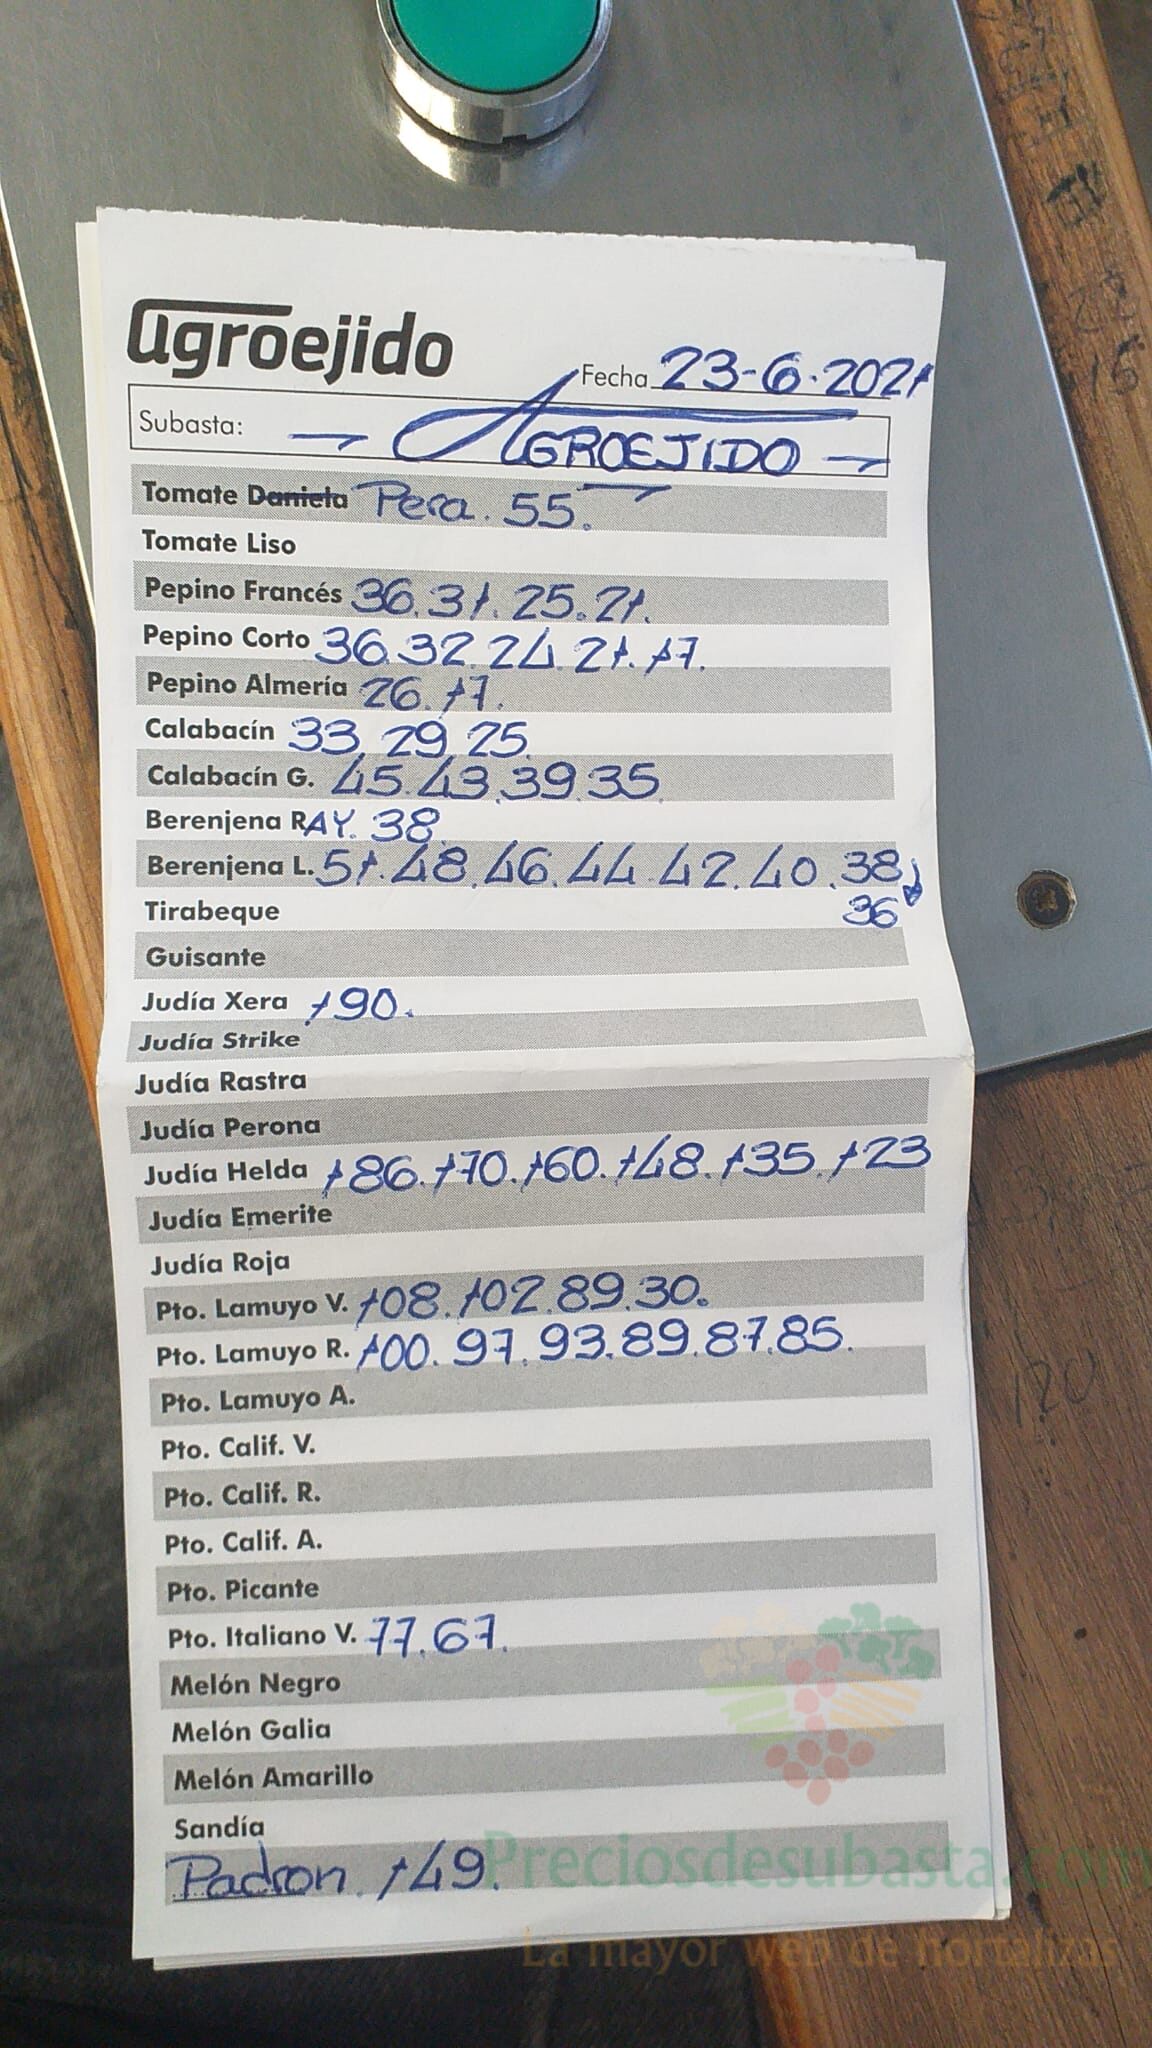 agroejido
Fecha 23-6-2021
Subasta: AGROEJIDO
Tomate Daniela Pera. 55.
Tomate Liso
Pepino Francés 36.31.25.21.
Pepino Corto 36.32.24.21.17.
Pepino Almería 26.17.
Calabacín 33.29.25.
Calabacín G. 45.43.39.35
Berenjena RAY. 38.
Berenjena L. 51.48.46.44.42.40.38
Tirabeque 36
Guisante
Judía Xera 190.
Judía Strike
Judía Rastra
Judía Perona
Judía Helda 186.170.160.148.135.123
Judía Emerite
Judía Roja
Pto. Lamuyo V. 108.102.89.30.
Pto. Lamuyo R. 100.97.93.89.87.85.
Pto. Lamuyo A.
Pto. Calif. V.
Pto. Calif. R.
Pto. Calif. A.
Pto. Picante
Pto. Italiano V. 77.67.
Melón Negro
Melón Galia
Melón Amarillo
Sandía
Padron. 149.
Preciosdesubasta.com
La mayor web de hortalizas
120